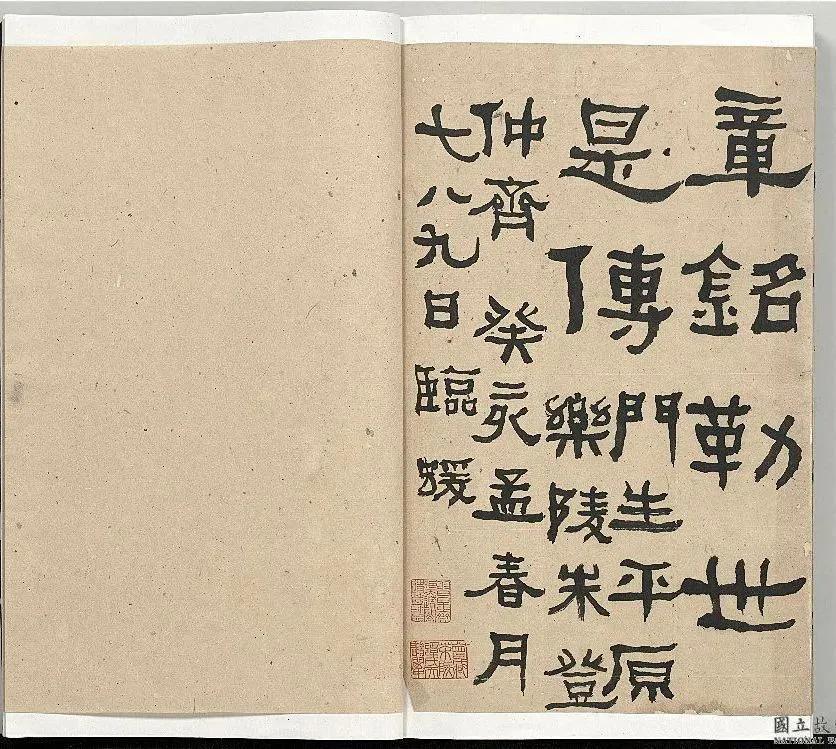 章銘勒世
是傳
門生平原
樂陵朱登
仲齊 癸亥孟春月
七八九日臨
國立故
NATIONAL